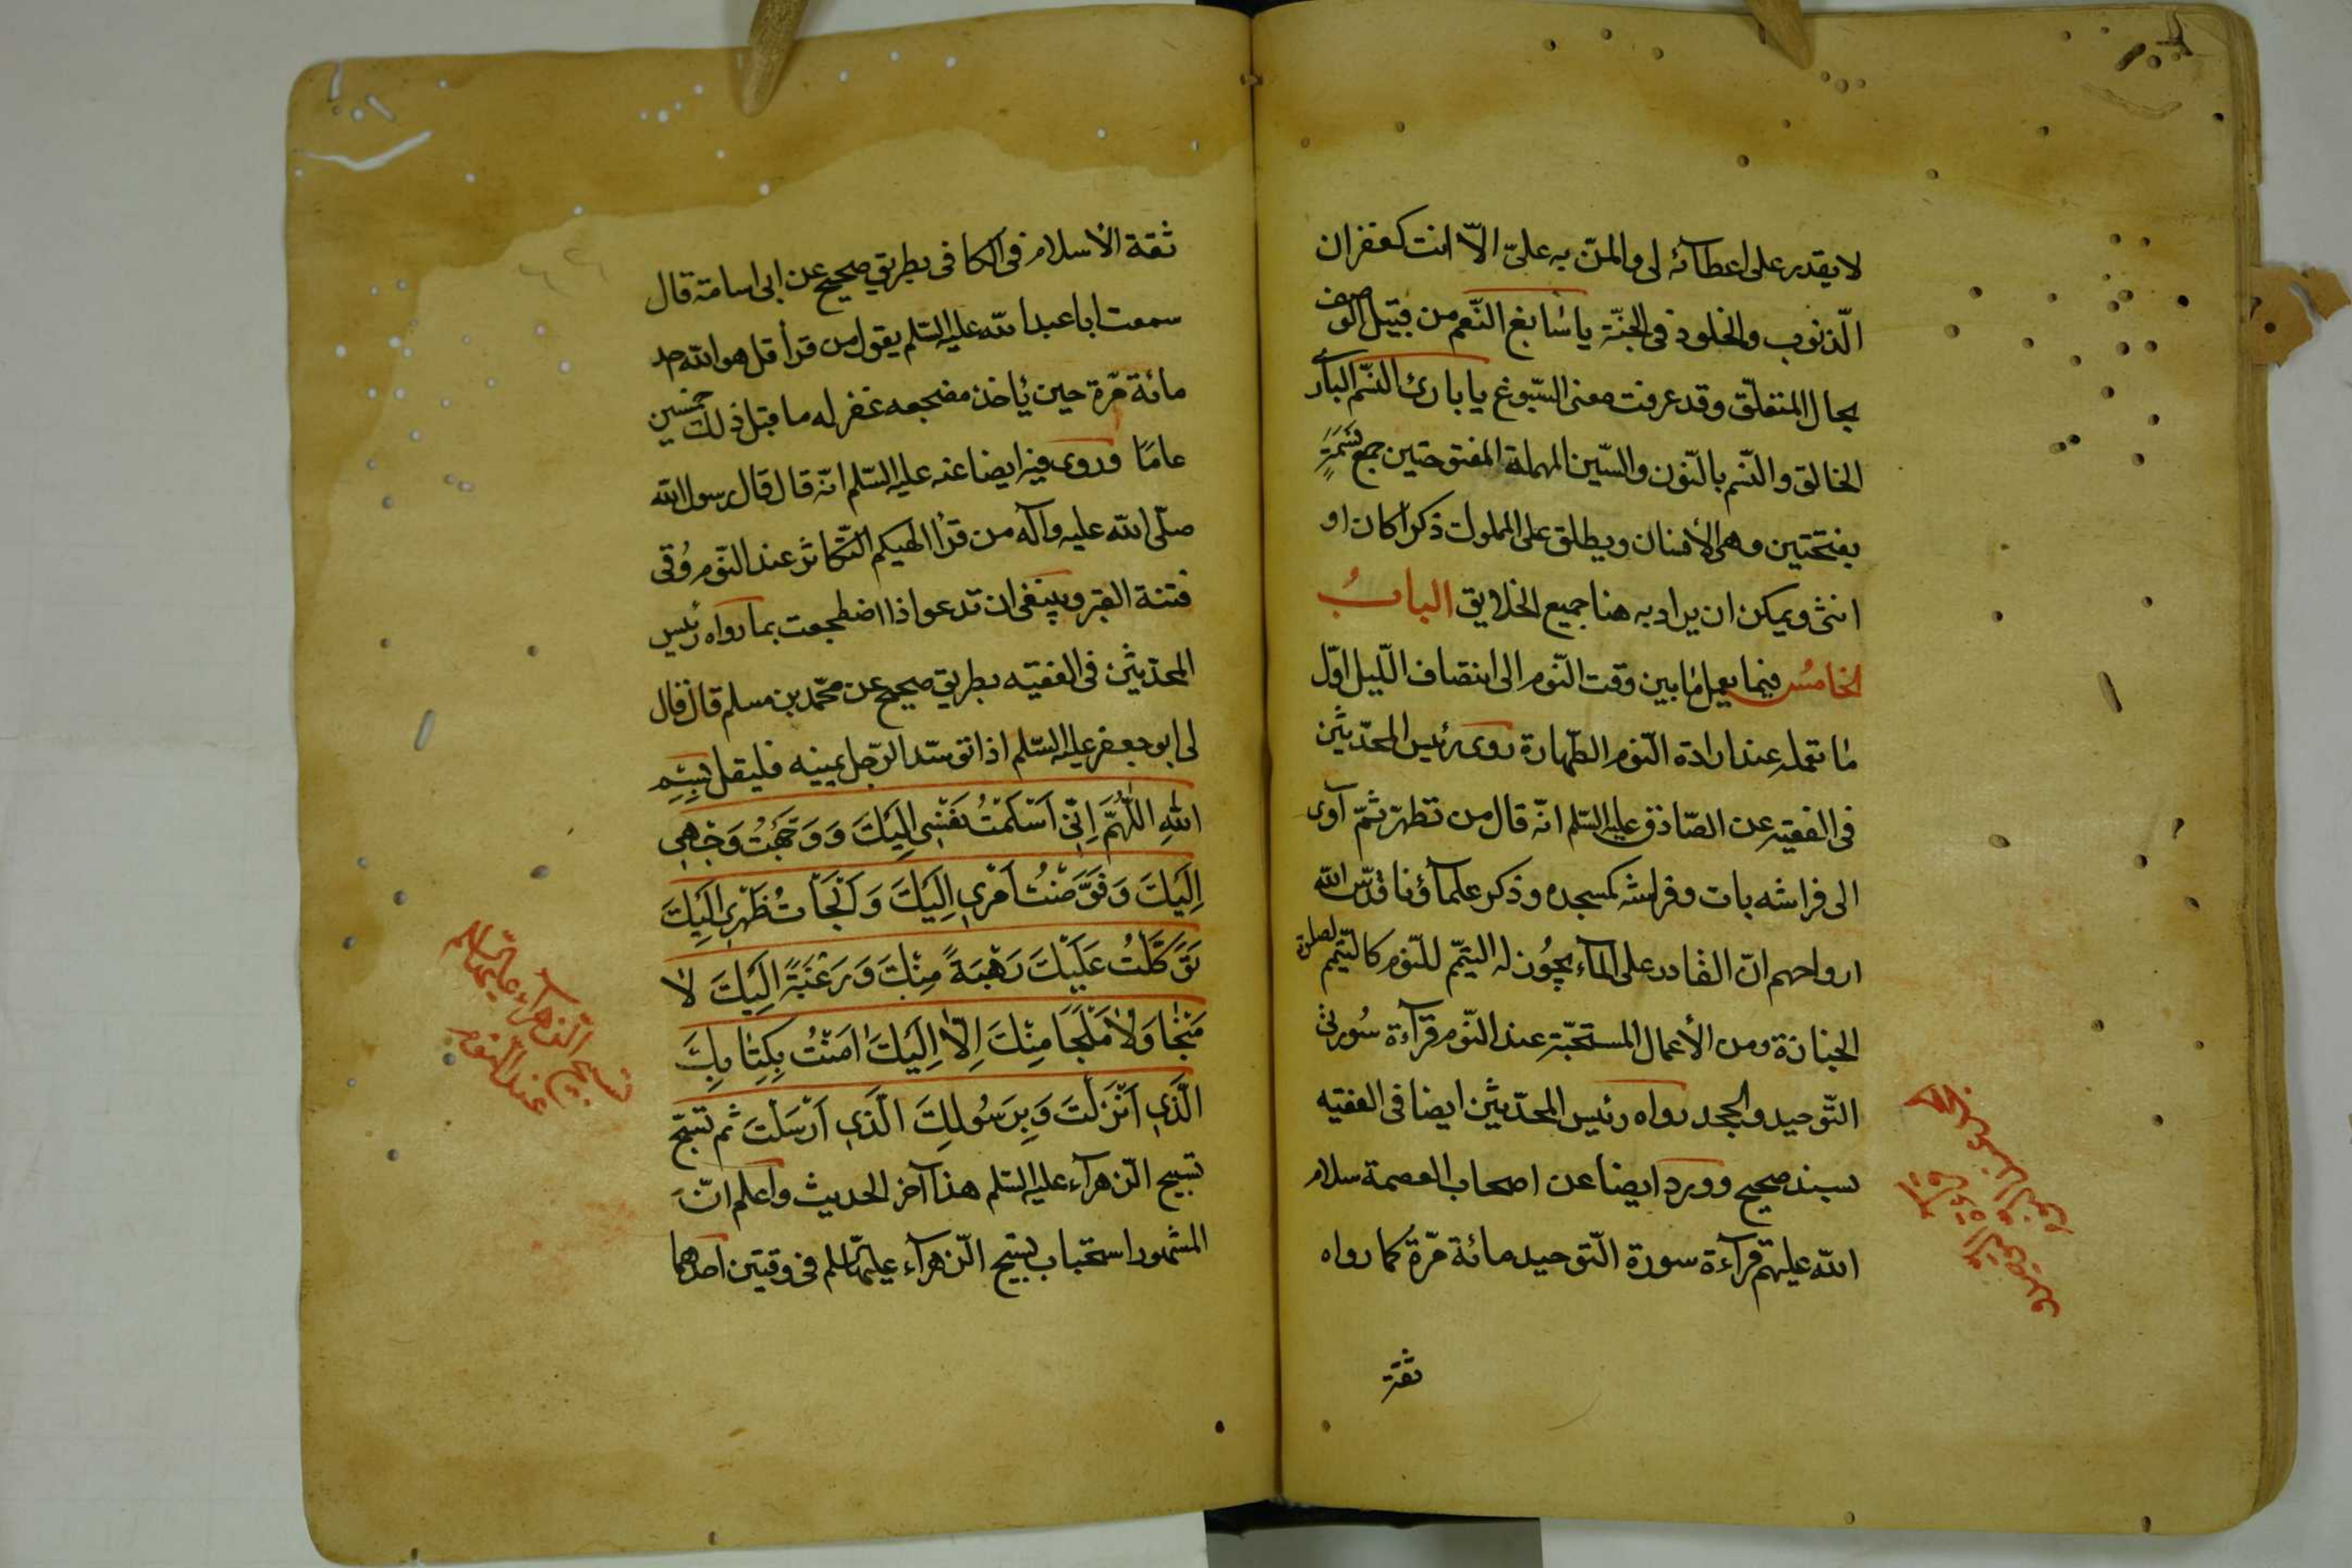 لا يقدر على اعطائه لى والمنّ به علىّ الاّ انت كغفران
الذّنوب والخلود فى الجنّة يا سابغ النّعم من قبيل الوصف
بحال المتعلّق وقد عرفت معنى السّبوغ يا بارئ النّسم البارئ
الخالق والنّسم بالنّون والسّين المهملة المفتوحتين جمع نَسَمَةٍ
بفتحتين وهى الأنسان ويطلق على المملوك ذكراً كان او
انثى ويمكن ان يراد به هنا جميع الخلايق البابُ
الخامسُ فيما يعمل ما بين وقت النّوم الى انتصاف اللّيل اوّل
ما تعمله عند ارادة النّوم الطّهارة روى رئيس المحدّثين
فى الفقيه عن الصّادق عليه السّلم انّه قال من تطهّر ثمّ آوى
الى فراشه بات وفراشه كمسجده وذكر علمآؤنا قدّس الله
ارواحهم انّ القادر على المآء يجوُز له التيمّم للنّوم كالتيّمم لصلوة
الجنازة ومن الأعمال المستحبّة عند النّوم قرآءة سُورتى
التّوحيد والجحد رواه رئيس المحدّثين ايضا فى الفقيه
بسند صحيح وورد ايضا عن اصحاب العصمة سلام
الله عليهم قرآءة سورة التّوحيد مائة مرّة كما رواه
ثقة
ثقة الأسلام فى الكافى بطريق صحيح عن ابى اسامة قال
سمعت ابا عبد الله عليه السّلم يقول من قرأ قل هو الله احد
مائة مرّة حين يأخذ مضجعه غفر له ما قبل ذلك خمسين
عامًا وروى فيه ايضا عنه عليه السّلم انّه قال قال رسول الله
صلّى الله عليه وآله من قرأ الهيكم التّكاثر عند النّوم وُقى
فتنة القبر وينبغى ان تدعو اذا اضطجعت بما رواه رئيس
المحدّثين فى الفقيه بطريق صحيح عن محمّد بن مسلم قال قال
لى ابو جعفر عليه السّلم اذا توسّد الرّجل يمينه فليقل بِسْمِ
اللهِ اَللّهُمَّ اِنّى اَسْلَمْتُ نَفْسى اِلَيْكَ وَوَجَّهْتُ وَجْهى
اِلَيْكَ وَفَوَّضْتُ اَمْرى اِلَيْكَ وَاَلْجَأتُ ظَهْرى اِلَيْكَ
تَوَكَّلْتُ عَلَيْكَ رَهْبَةً مِنْكَ وَرَغْبَةً اِلَيْكَ لا
مَنْجا وَلا مَلْجَأ مِنْكَ اِلاّ اِلَيْكَ امَنْتُ بِكِتابِكَ
الَّذى اَنْزَلْتَ وَبِرَسُولِكَ الَّذى اَرْسَلْتَ ثم تسبّح
تسبيح الزّهرآء عليها السّلم هذا آخر الحديث واعلم انّ
المشهور استحباب تسبيح الزّهرآء عليها السّلم فى وقتين احدهما
تسبيح الزّهرآء عليها السّلم
عند النّوم